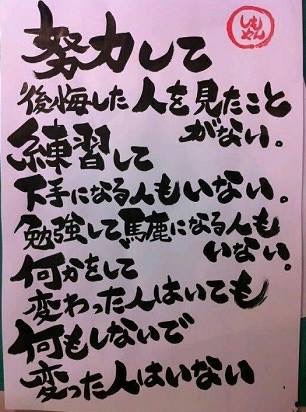 努力して
後悔した人を見たこと
がない。
練習して
下手になる人もいない。
勉強して馬鹿になる人も
いない。
何かをして
変わった人はいても
何もしないで
変った人はいない
しもやん